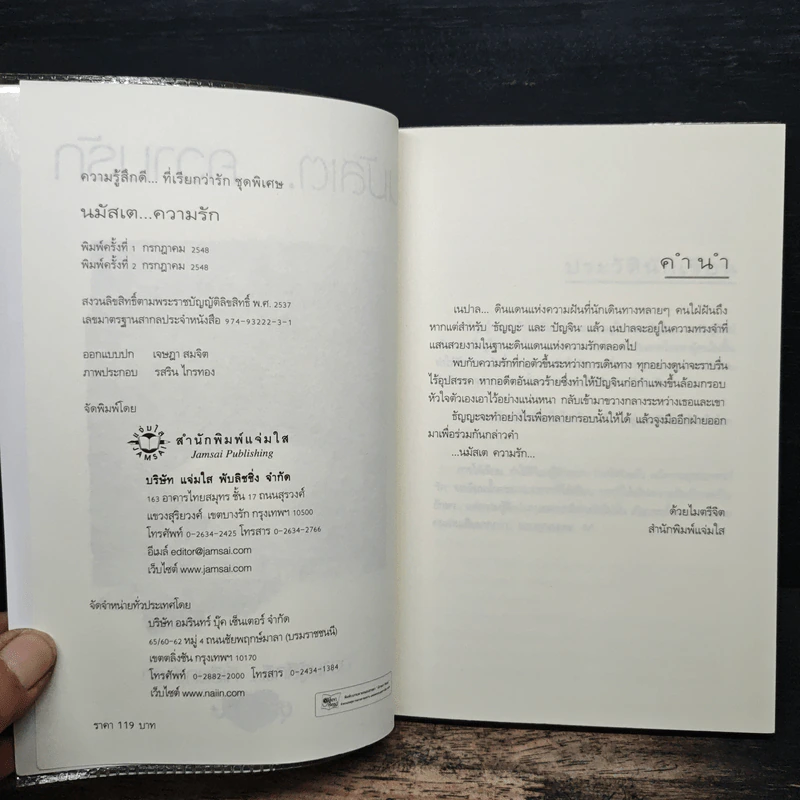 ความรู้สึกดี... ที่เรียกว่ารัก ชุดพิเศษ
นมัสเต...ความรัก
พิมพ์ครั้งที่ 1 กรกฎาคม 2548
พิมพ์ครั้งที่ 2 กรกฎาคม 2548
สงวนลิขสิทธิ์ตามพระราชบัญญัติลิขสิทธิ์ พ.ศ. 2537
เลขมาตรฐานสากลประจำหนังสือ 974-93222-3-1
ออกแบบปก เจษฎา สมจิต
ภาพประกอบ รสริน ไกรทอง
จัดพิมพ์โดย
แจ่มใส
JAMSAI
สำนักพิมพ์แจ่มใส
Jamsai Publishing
บริษัท แจ่มใส พับลิชชิ่ง จำกัด
163 อาคารไทยสมุทร ชั้น 17 ถนนสุรวงศ์
แขวงสุริยวงศ์ เขตบางรัก กรุงเทพฯ 10500
โทรศัพท์ 0-2634-2425 โทรสาร 0-2634-2766
อีเมล์ editor@jamsai.com
เว็บไซต์ www.jamsai.com
จัดจำหน่ายทั่วประเทศโดย
บริษัท อมรินทร์ บุ๊ค เซ็นเตอร์ จำกัด
65/60-62 หมู่ 4 ถนนชัยพฤกษ์มาลา (บรมราชชนนี)
เขตตลิ่งชัน กรุงเทพฯ 10170
โทรศัพท์ 0-2882-2000 โทรสาร 0-2434-1384
เว็บไซต์ www.naiin.com
ราคา 119 บาท
คำนำ
เนปาล... ดินแดนแห่งความฝันที่นักเดินทางหลายๆ คนใฝ่ฝันถึง
หากแต่สำหรับ 'ธัญญะ' และ 'ปัญจิน' แล้ว เนปาลจะอยู่ในความทรงจำที่
แสนสวยงามในฐานะดินแดนแห่งความรักตลอดไป
พบกับความรักที่ก่อตัวขึ้นระหว่างการเดินทาง ทุกอย่างดูน่าจะราบรื่น
ไร้อุปสรรค หากอดีตอันเลวร้ายซึ่งทำให้ปัญจินก่อกำแพงขึ้นล้อมกรอบ
หัวใจตัวเองเอาไว้อย่างแน่นหนา กลับเข้ามาขวางกลางระหว่างเธอและเขา
ธัญญะจะทำอย่างไรเพื่อทลายกรอบนั้นให้ได้ แล้วจูงมืออีกฝ่ายออก
มาเพื่อร่วมกันกล่าวคำ
...นมัสเต ความรัก...
ด้วยไมตรีจิต
สำนักพิมพ์แจ่มใส